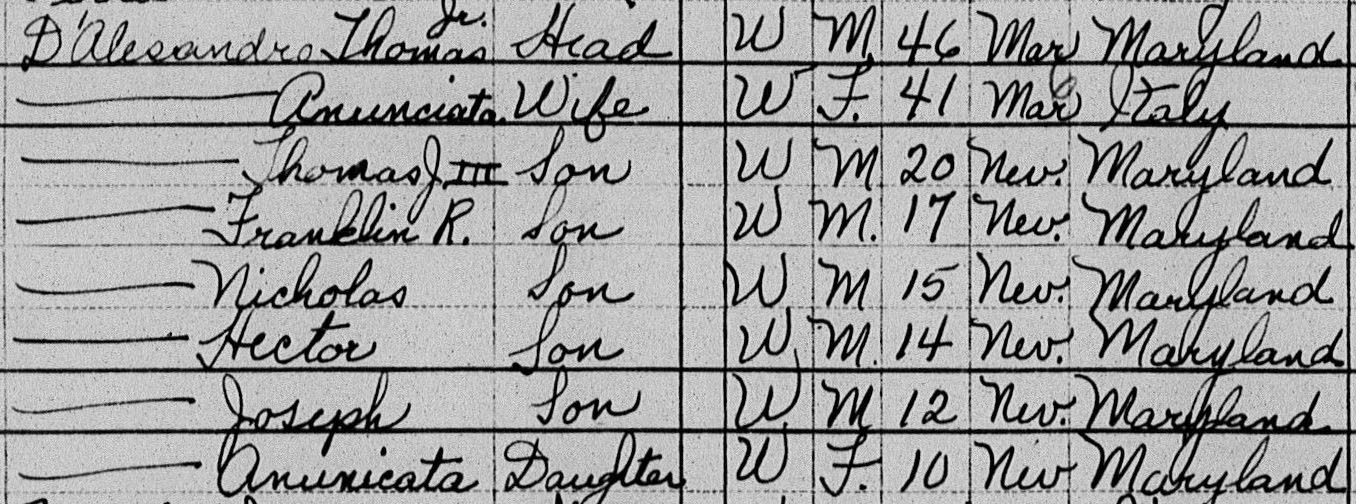 D'Alesandro Thomas Jr. Head W M. 46 Mar Maryland
Anunciata. Wife W F. 41 Mar Italy
Thomas J III Son W M 20 Nev. Maryland
Franklin R. Son W M. 17 Nev. Maryland
Nicholas Son W M 15 Nev. Maryland
Hector Son W M. 14 Nev. Maryland
Joseph Son W M 12 Nev. Maryland
Anunicata Daughter W F. 10 Nev Maryland